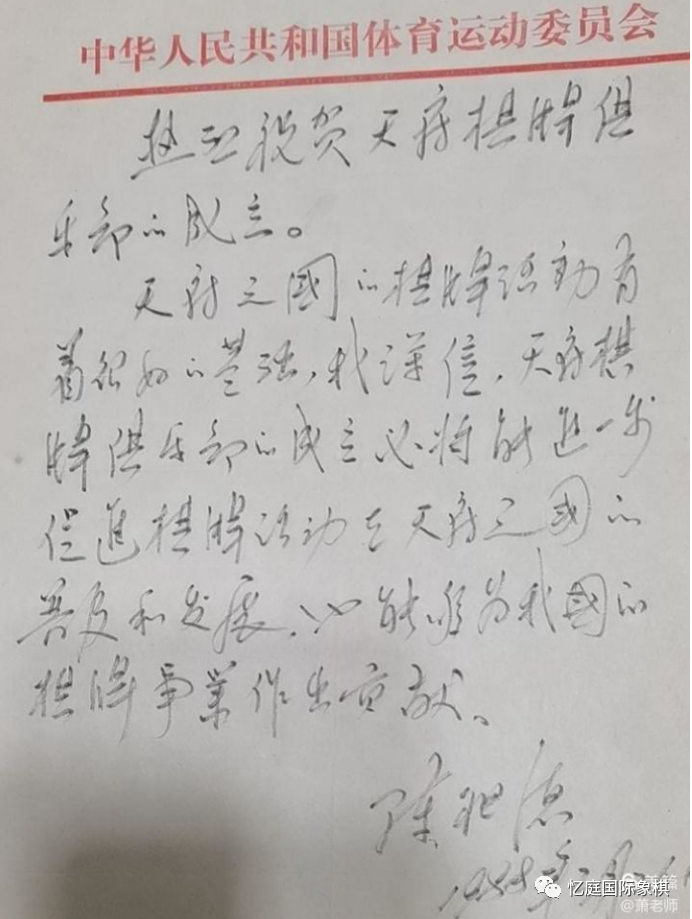 中华人民共和国体育运动委员会
热烈祝贺天府棋牌俱
乐部的成立。
天府之國的棋牌活动有
着很好的基础，我深信，天府棋
牌俱乐部的成立必将能进一步
促進棋牌活动在天府之國的
普及和发展，也能够为我國的
棋牌事業作出贡献。
陈祖德
1988年
忆庭国际象棋
@萧老师